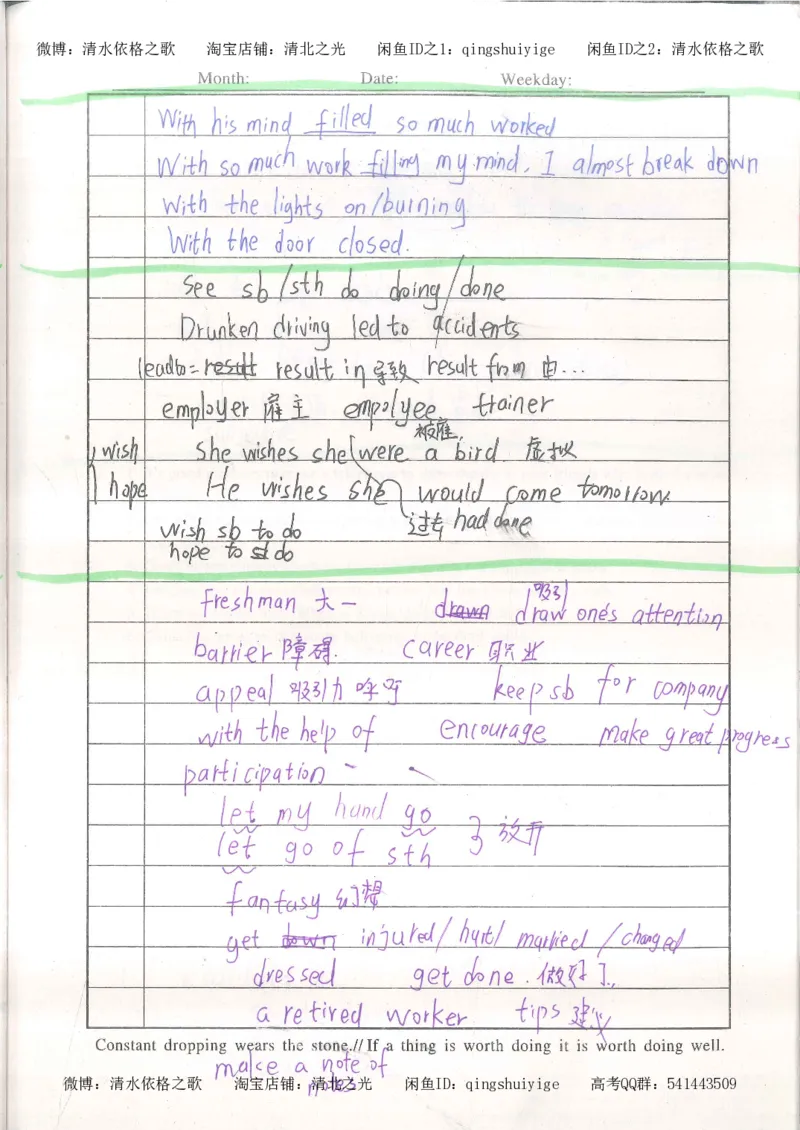 微博：清水依格之歌 淘宝店铺：清北之光 闲鱼ID之1：qingshuiyige 闲鱼ID之2：清水依格之歌
Month: Date: Weekday:
With his mind filled so much worked
With so much work filling my mind, I almost break down
With the lights on/burning
With the door closed.
See sb/sth do doing/done
Drunken driving led to accidents
lead to = result result in 导致 result from 由...
employer 雇主 empolyee trainer
被雇
wish She wishes she were a bird. 虚拟
hope He wishes she would come tomorrow
过去 had done
wish sb to do
hope to do
freshman 大一 drawn 吸引 draw one's attention
barrier 障碍. career 职业
appeal 吸引力 呼吁 keep sb for company
with the help of encourage make great progress
participation
let my hand go
let go of sth } 放开
fantasy 幻想
get down injured/hurt/married/changed
dressed get done. 做好了..
a retired worker tips 建议
Constant dropping wears the stone.//If a thing is worth doing it is worth doing well.
make a note of
notes
微博：清水依格之歌 淘宝店铺：清北之光 闲鱼ID：qingshuiyige 高考QQ群：541443509